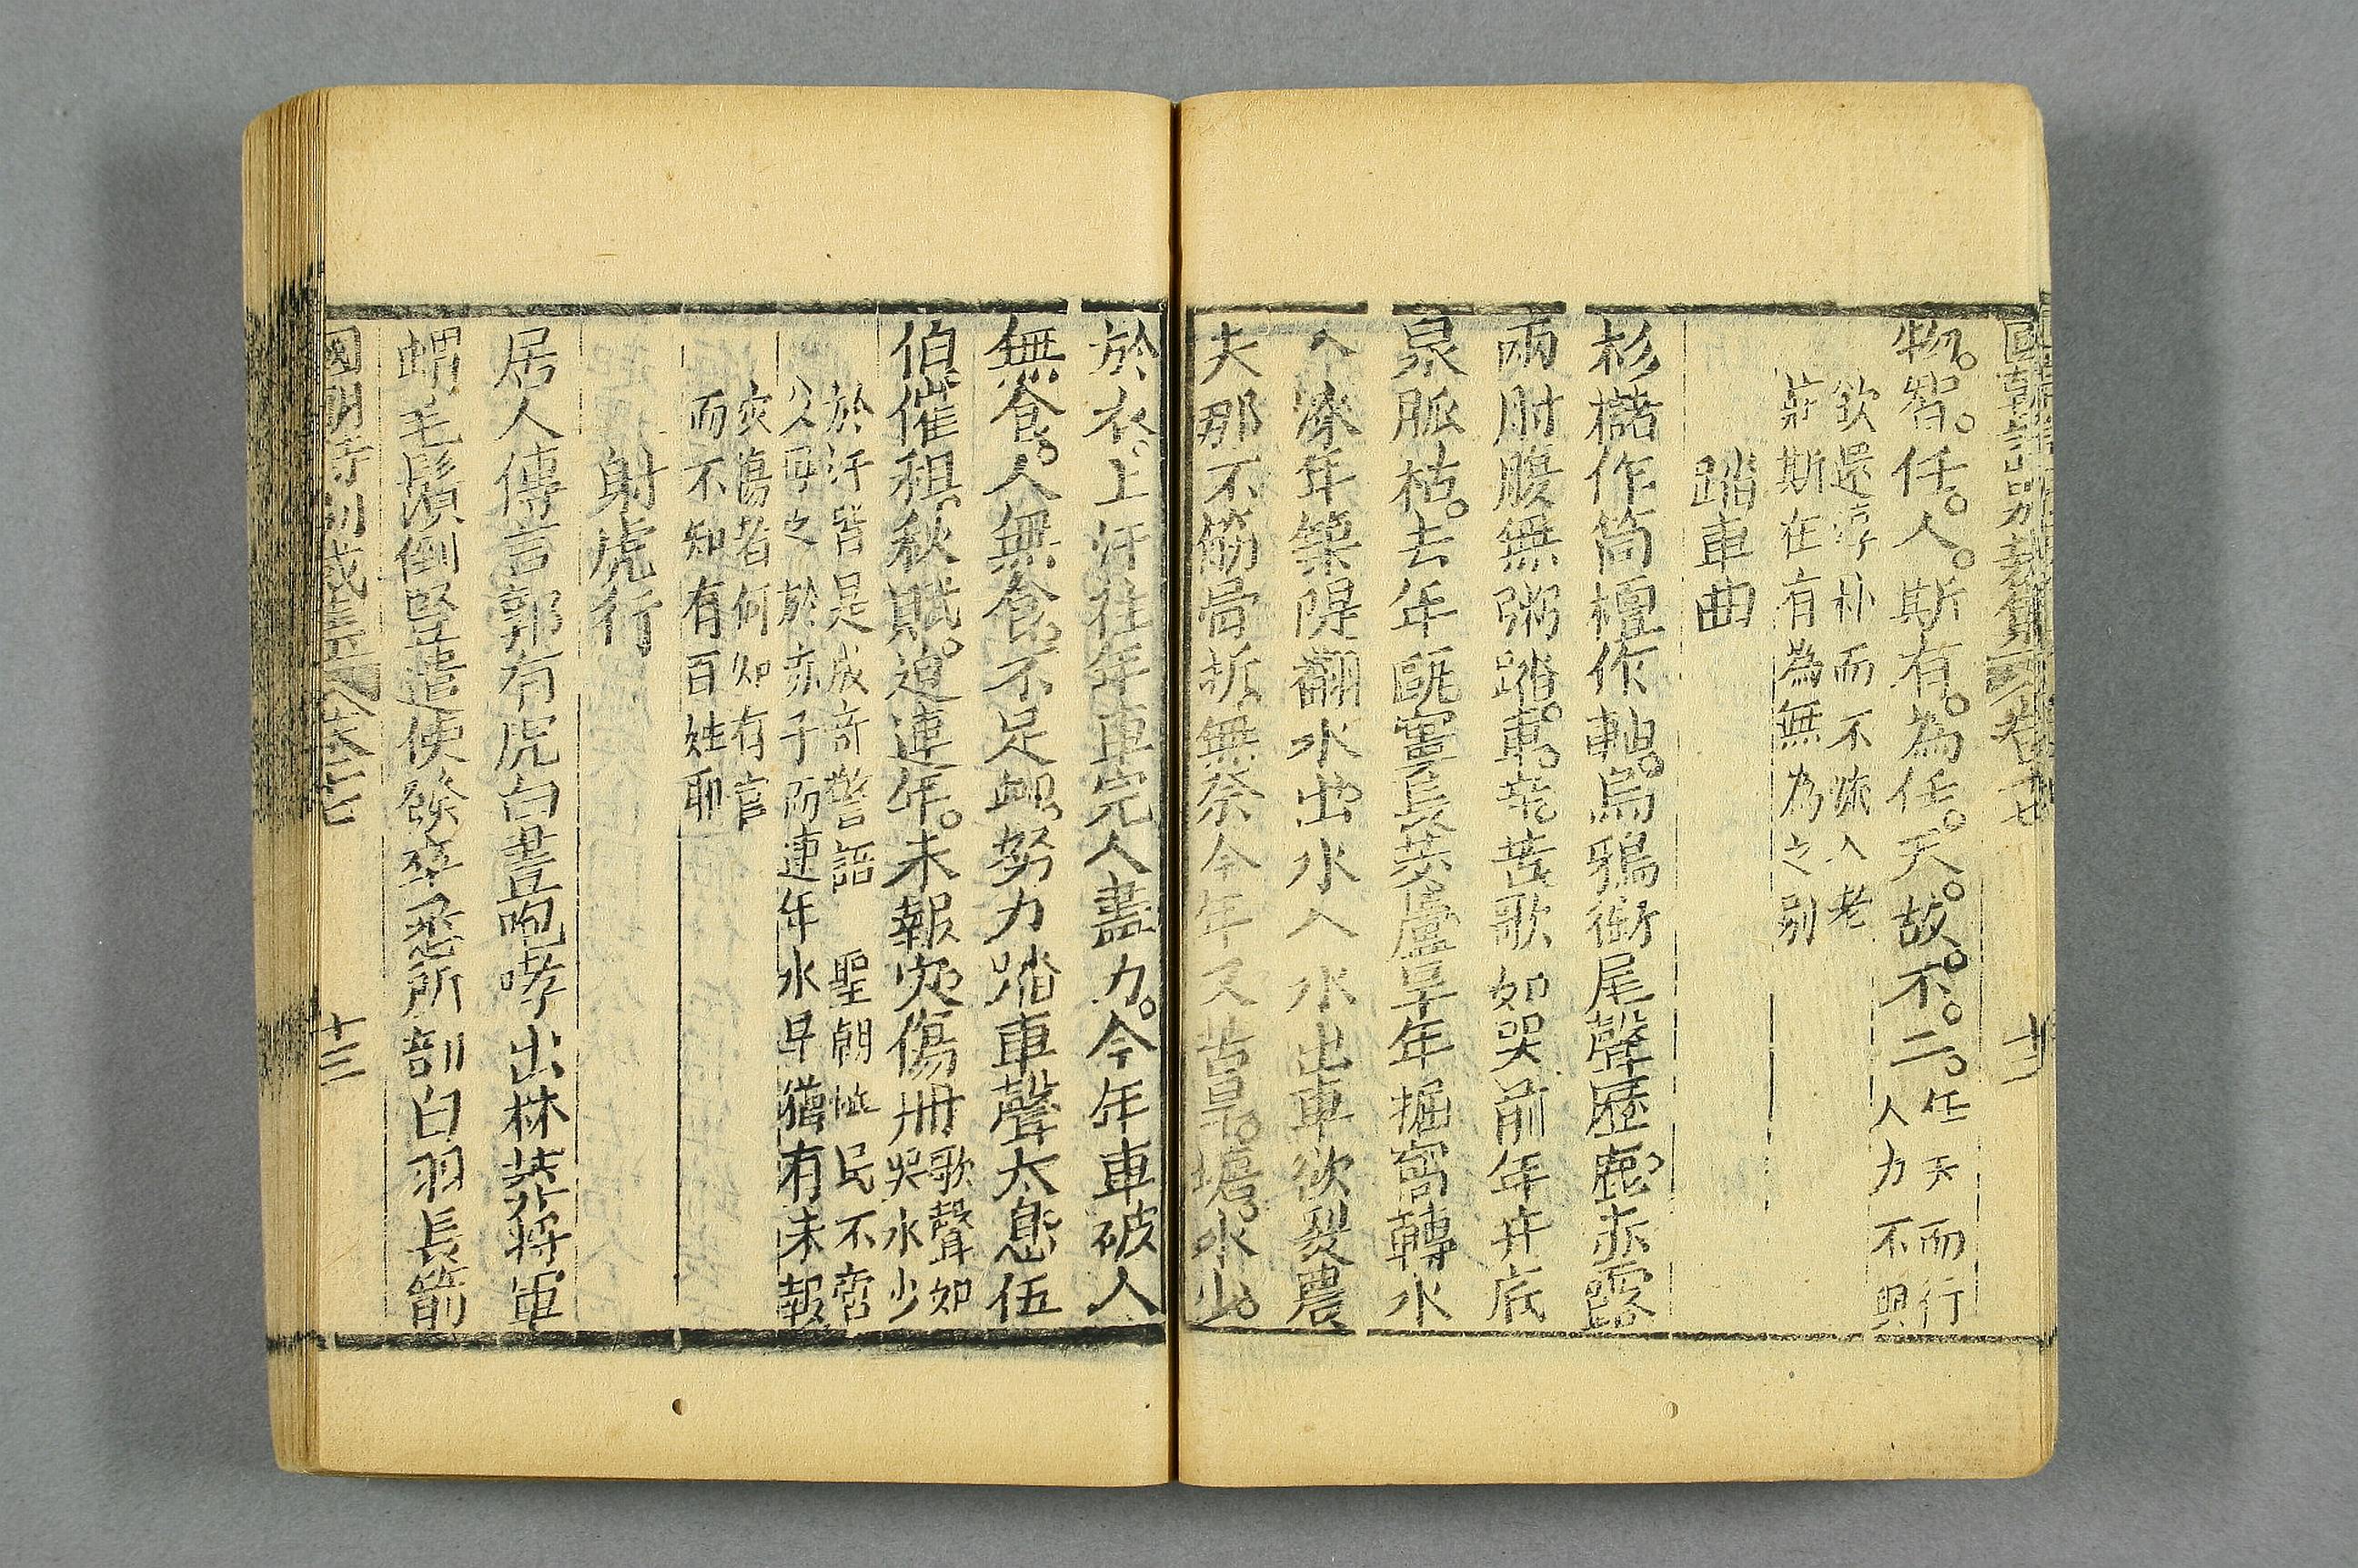 物智任人斯有為任天故不二任天而行
人力不興
欽還淳朴而不流入老
莊斯在有為無為之別
踏車曲
杉櫧作筒檀作軸烏鴉銜尾聲歷鹿赤露
兩肘腹無粥踏車辛苦歌如哭前年井底
泉脈枯去年甌窶長茭蘆旱年掘窩轉水
入滌年築隄翻水出水入水出車欲裂農
夫那不筋骨折無奈今年又苦旱塘水少
於衣上汗往年車完人盡力今年車破人
無食人無食不足卹努力踏車聲太息伍
伯催租秋賦迫連年未報灾傷冊歌聲如
哭水少
於汗皆是成奇警語 聖朝恤民不啻
父母之於赤子而連年水旱猶有未報
灾傷者何知有官
而不知有百姓耶
射虎行
居人傳言郭有虎白晝咆哮出林莽將軍
蝟毛鬚倒豎遣使發卒悉所部白羽長箭
十三